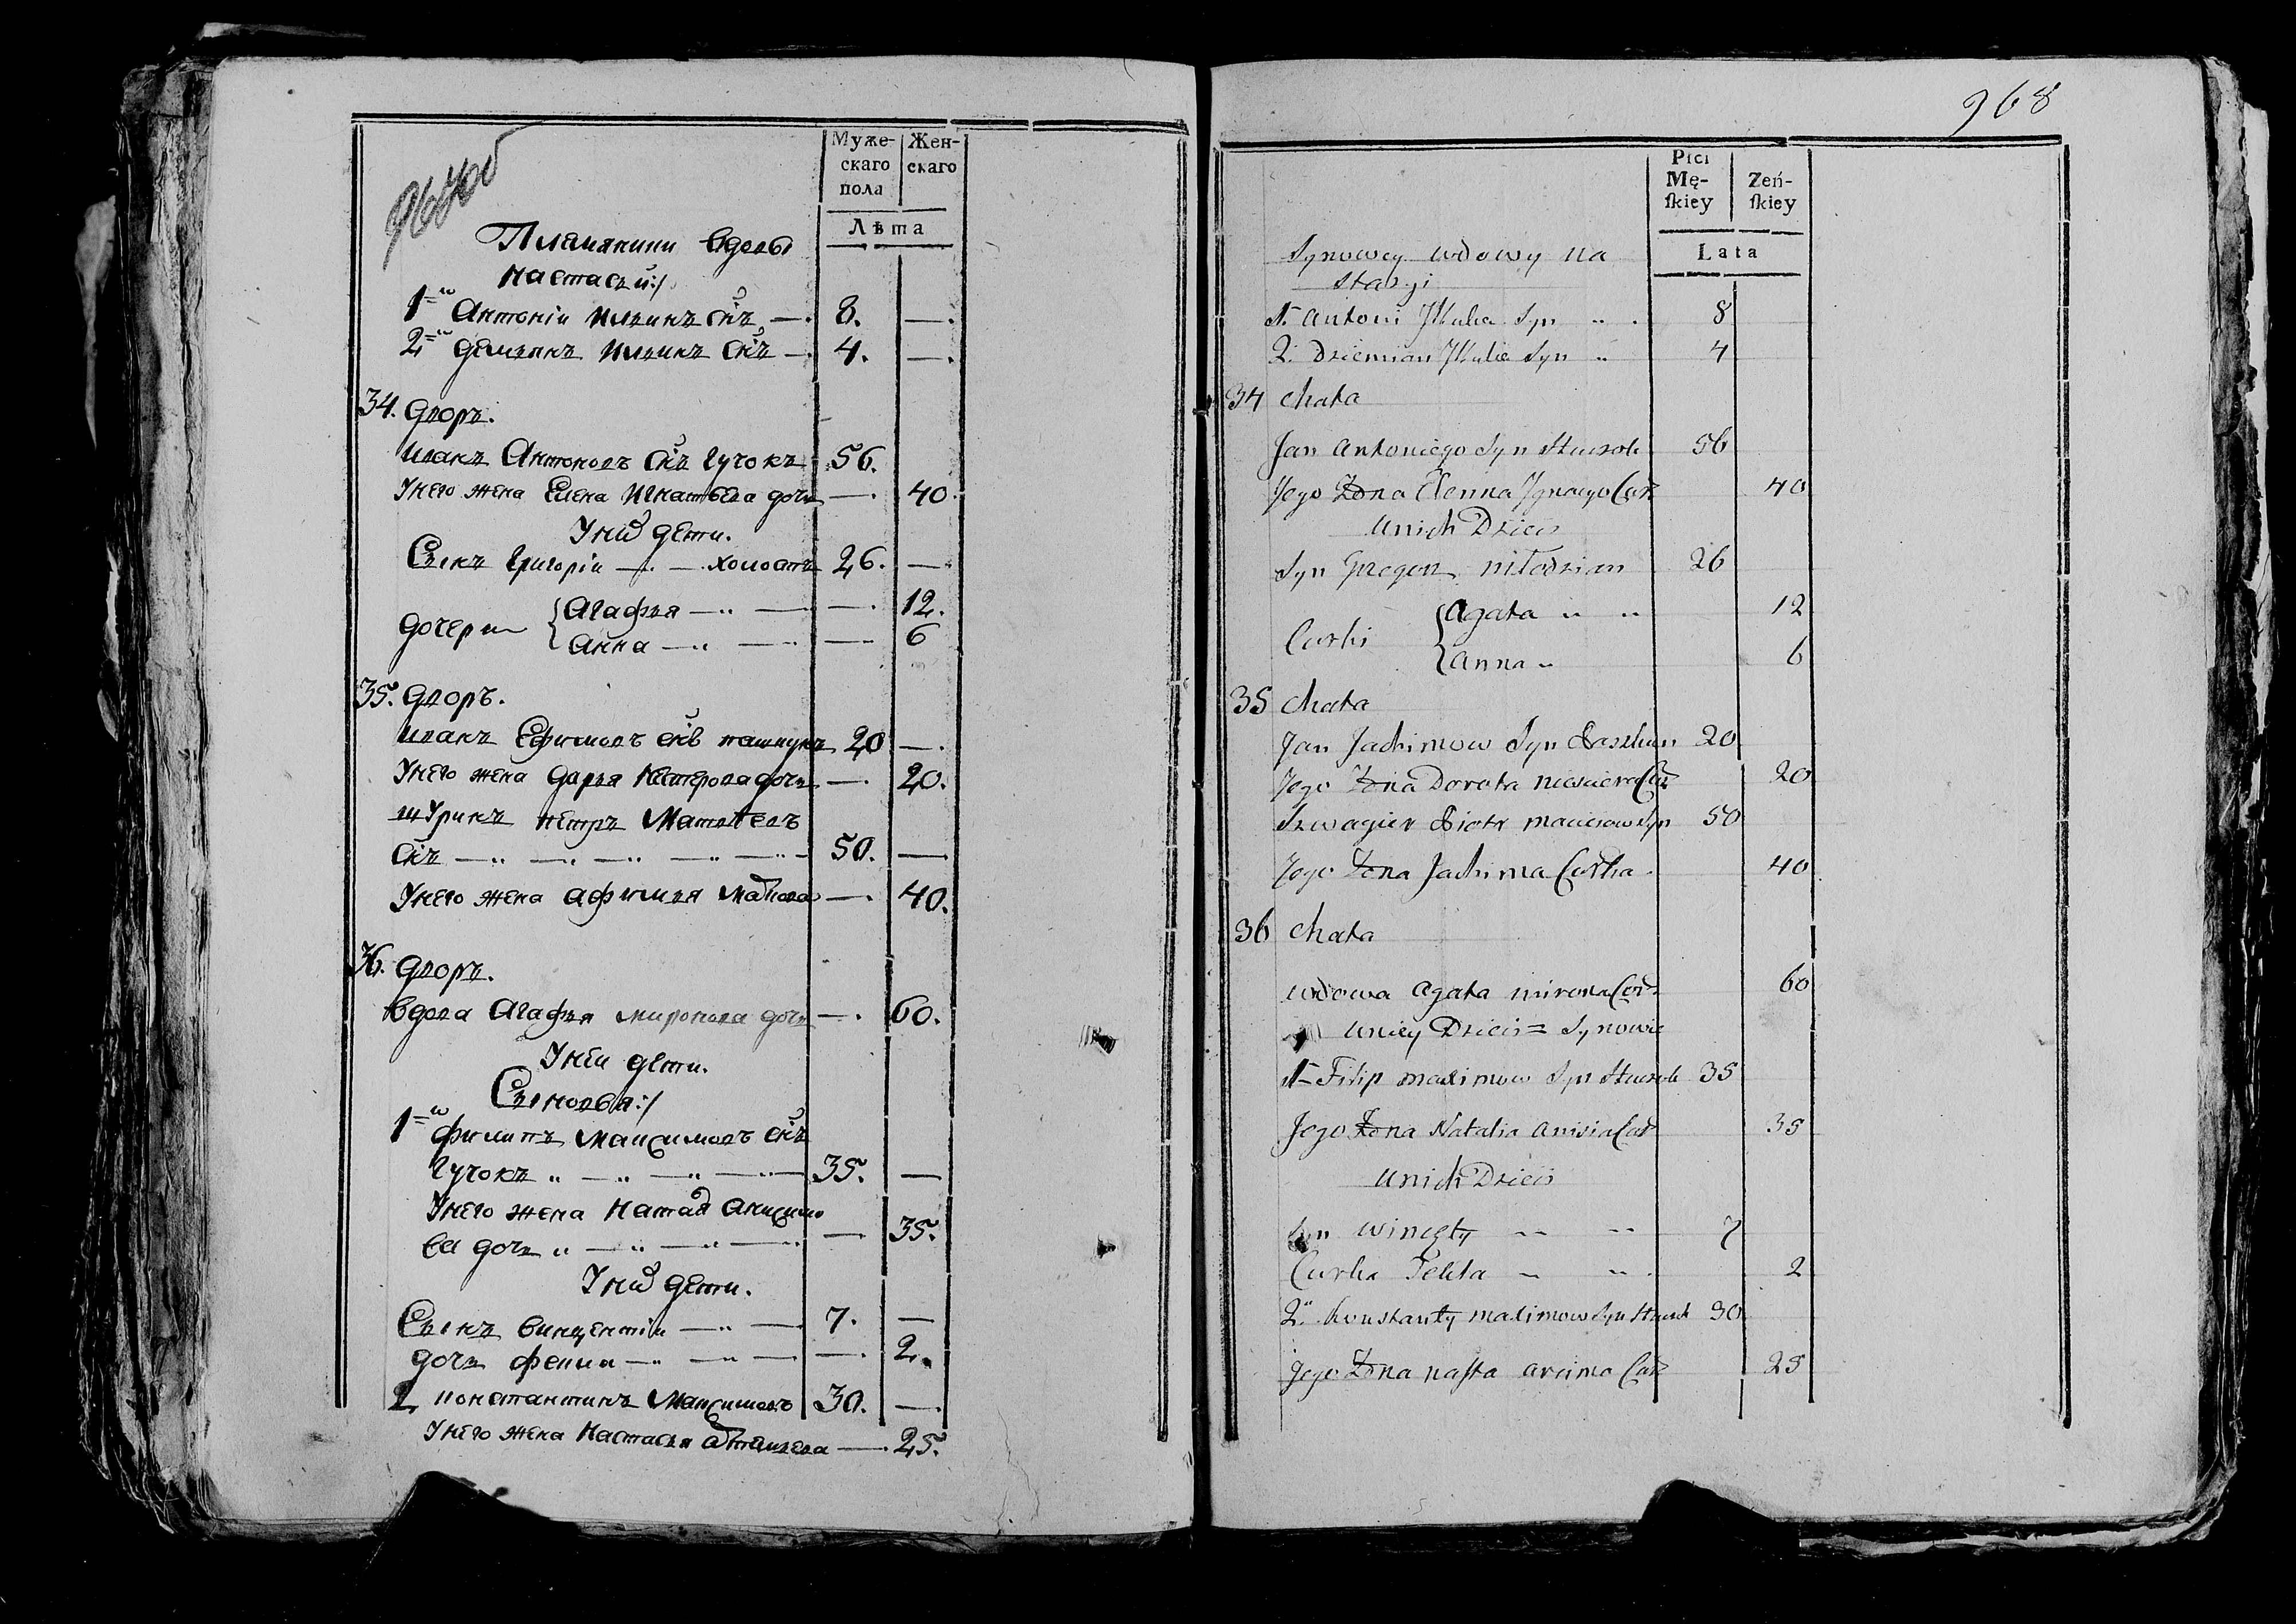 Муже-
скаго
пола
Жен-
скаго
Лѣта
Племянники вдовы
Настасьи:/
1=й Антоній Ильинъ снъ — 8. —
2=й Демьянъ Ильинъ снъ — 4. —
34. Дворъ.
Иванъ Антоновъ снъ Гучокъ 56.
У него жена Елена Игнатьева дочь — 40.
У них дети.
Сынъ Григорій — холостъ 26. —
дочери { Агафья — — 12.
Анна — — 6
35. Дворъ.
Иванъ Ефимовъ снъ 20 —
У него жена Дарья Нестерова дочь — 20.
шуринъ Петръ Матвѣевъ
снъ — 50. —
У него жена Афимья — 40.
36. Дворъ.
Вдова Агафья Миронова дочь — 60.
У неи дети.
Сыновья:/
1=й Филипъ Максимовъ снъ
Гучокъ — 35. —
У него жена Натал Анисимо
ва дочь — 35.
У них дети.
Сынъ Винцентій — 7. —
дочь Фекла — — 2.
2 Константинъ Максимовъ 30. —
У него жена Настасья — 25.
968
Płci
Mę-
ſkiey
Zeń-
ſkiey
Lata
Synowcy wdowy Na
stazyi
1. Antoni Syn 8
2. Dziemian Syn 4
34 Chata
Jan Antoniego Syn 56
Jego Żona Elenna Ignacego Cór 40
U nich Dzieci
Syn Gregorz młodzian 26
Curki { Agata 12
Anna 6
35 Chata
Jan Jachimow Syn 20
Jego Żona Dorota Cór 20
Szwagier Piotr Syn 50
Jego Żona Jachima Curka 40
36 Chata
Wdowa Agata Mirona Cór 60
U niey Dzieci = Synowie
1= Filip Maximow Syn 35
Jego Żona Natalia Anisia Cór 35
U nich Dzieci
Syn Wincęty 7
Curka Tekla 2
2. Konstanty Maximow Syn 30
Jego Żona Nasta Cór 25